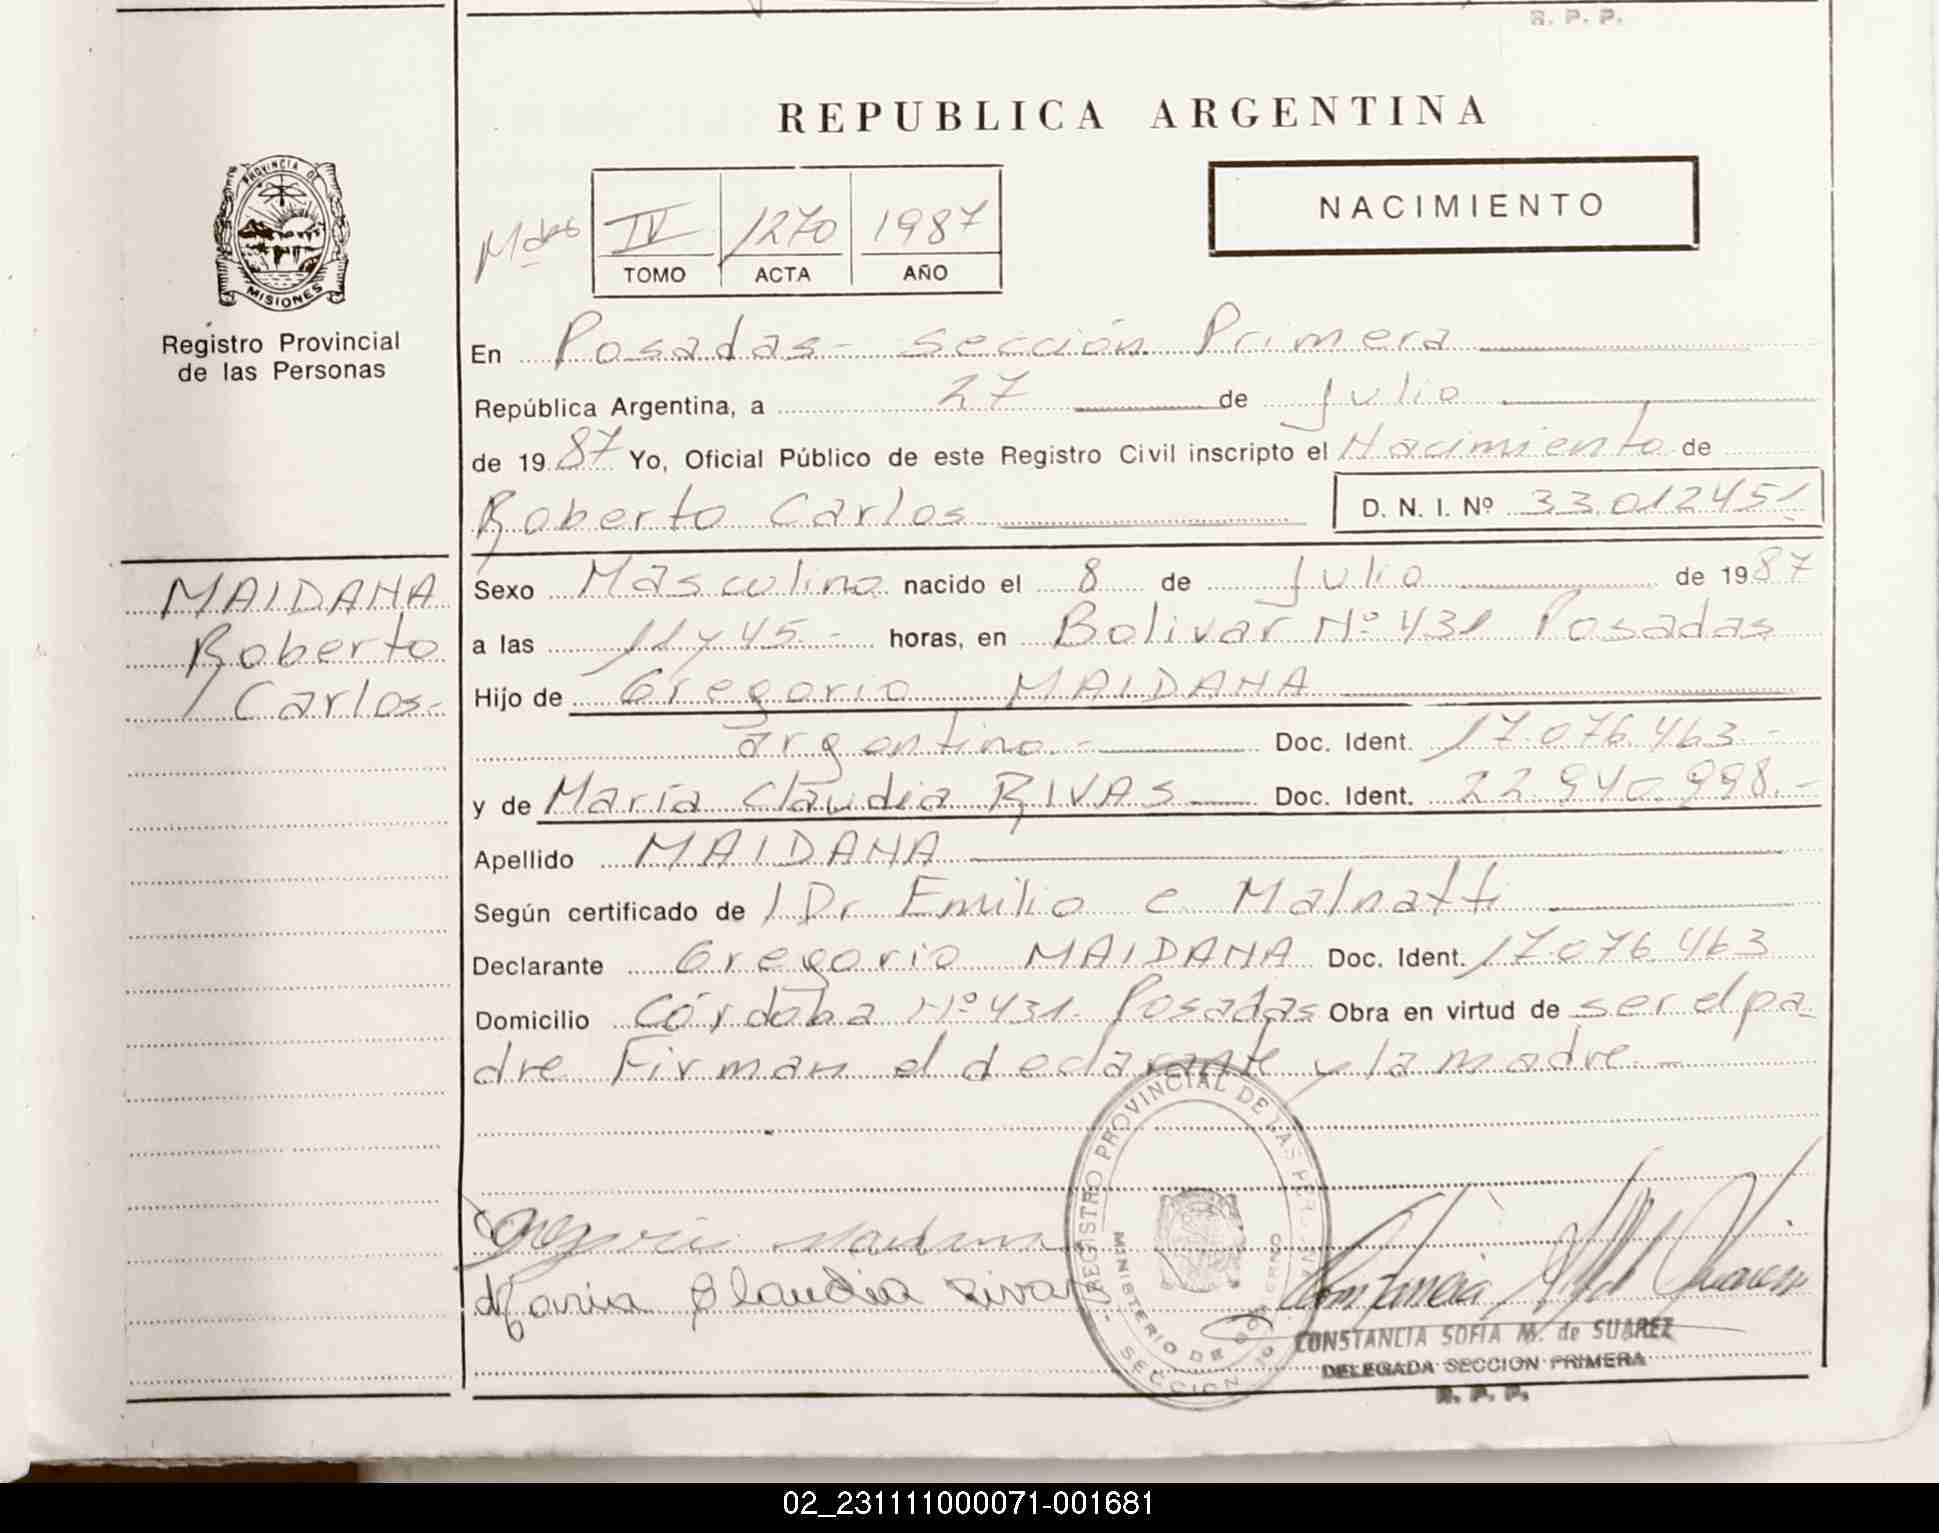 R. P. P.
REPUBLICA ARGENTINA
PROVINCIA DE
MISIONES
Registro Provincial
de las Personas
NACIMIENTO
Mdes IV 1270 1987
TOMO ACTA AÑO
En Posadas- sección Primera
República Argentina, a 27 de Julio
de 1987 Yo, Oficial Público de este Registro Civil inscripto el Nacimiento de
Roberto Carlos D. N. I. Nº 33.012451
MAIDANA
Roberto
Carlos-
Sexo Masculino nacido el 8 de Julio de 1987
a las 11 y 45.- horas, en Bolivar Nº 431 Posadas
Hijo de Gregorio MAIDANA
argentino.- Doc. Ident. 17.076.463-
y de María Claudia RIVAS Doc. Ident. 22.940.998.-
Apellido MAIDANA
Según certificado de / Dr Emilio C. Malnatti
Declarante Gregorio MAIDANA Doc. Ident. 17.076.463
Domicilio Córdoba Nº 431. Posadas Obra en virtud de ser el pa-
dre Firman el declarante y la madre.-
REGISTRO PROVINCIAL DE LAS PERSONAS
MINISTERIO DE GOBIERNO
SECCION 1º
Gregorio Maidana
Maria Claudia Rivas
CONSTANCIA SOFIA M. de SUAREZ
DELEGADA SECCION PRIMERA
R. P. P.
02_231111000071-001681